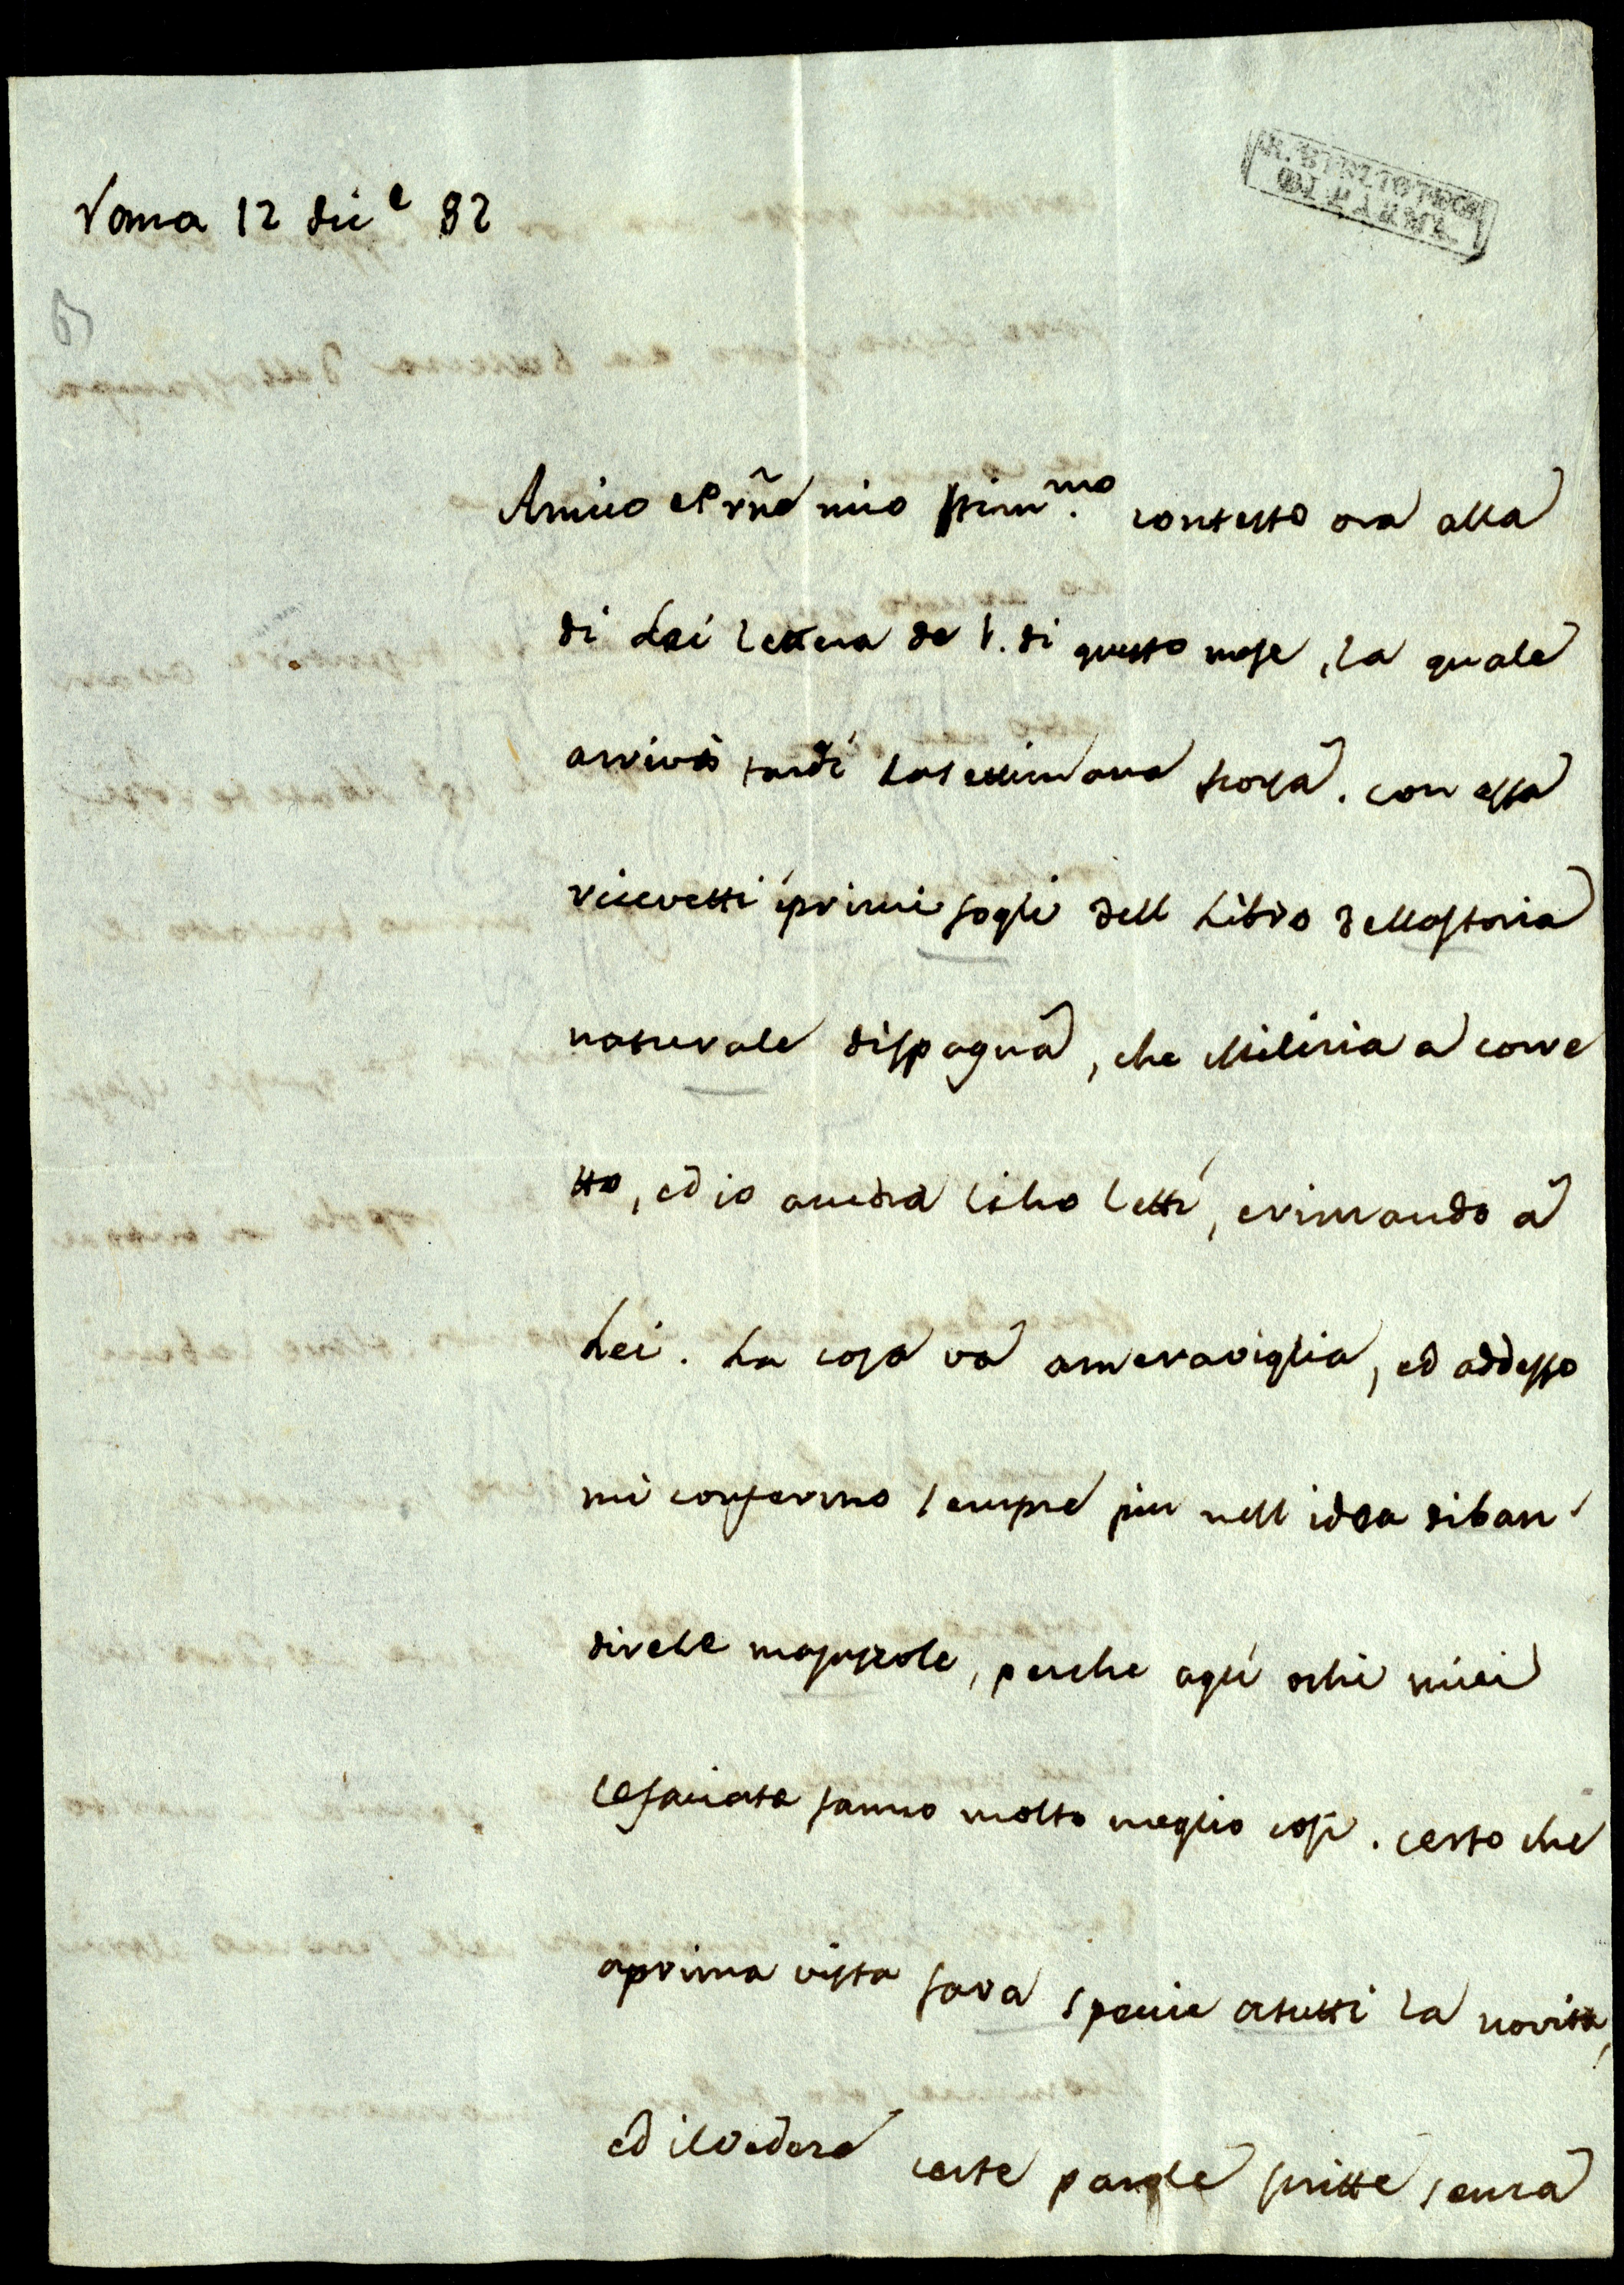 Roma 12 dice 82
R. BIBLIOTECA
DI PARMA
Amico e Prñe mio stimmo. contesto ora alla
di Lei lettera de 1. di questo mese, la quale
arrivò tardi la settimana scorsa. con essa
ricevetti i primi fogli dell Libro della storia
naturale di spagna, che Milizia a corre
tto, ed io ancora li ho letti, e rimando a
Lei. La cosa va a meraviglia, ed addesso
mi confermo sempre piu nell idea di ban
dire le majuscole, perche agli ochi miei
le faciate fanno molto meglio così. certo che
a prima vista fara specie a tutti la novita,
ed il vedere certe parole scritte senza